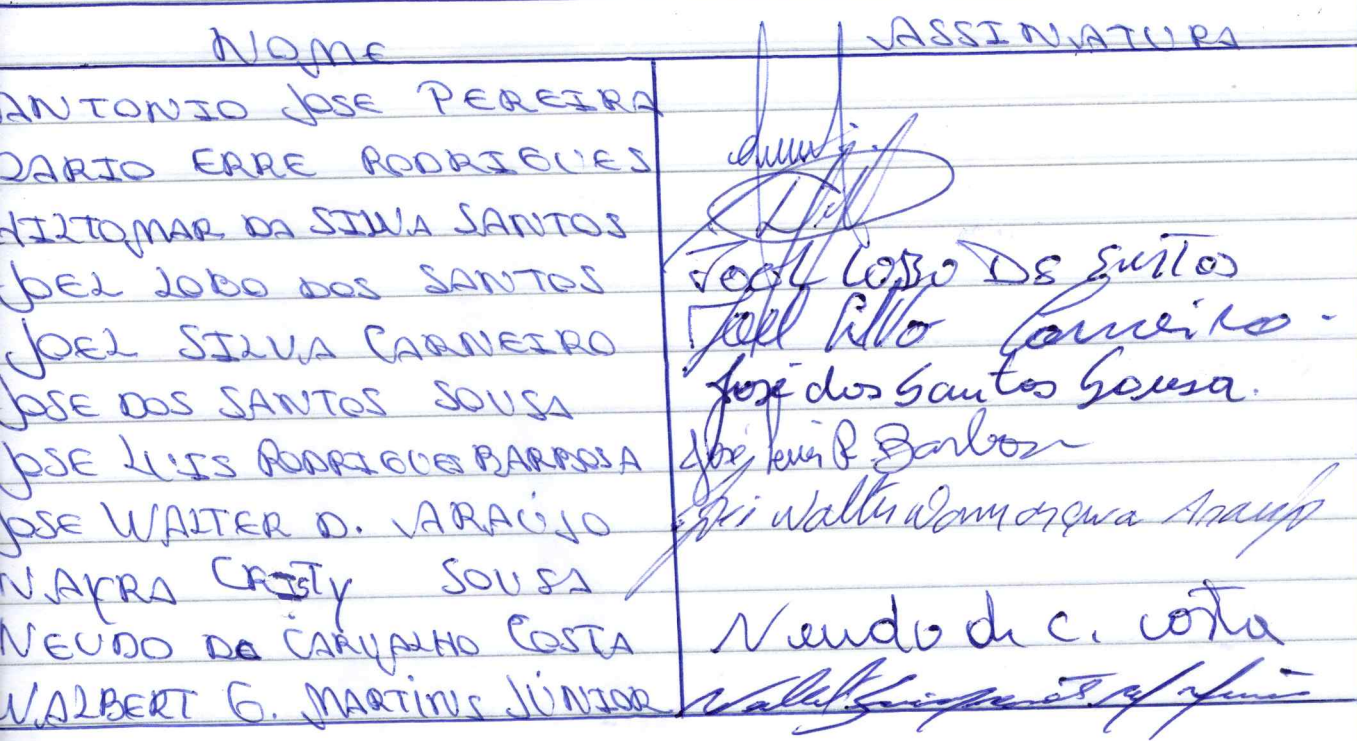 NOME ASSINATURA
ANTONIO JOSE PEREIRA
DARIO ERRE RODRIGUES
HILTOMAR DA SILVA SANTOS
JOEL LOBO DOS SANTOS Joel LOBO DS
JOEL SILVA CARNEIRO Joel Carneiro
JOSE DOS SANTOS SOUSA José dos Santos Sousa.
JOSE LUIS RODRIGUES BARBOSA José Luis R Barbosa
JOSE WALTER D. ARAÚJO José Walter Araujo
NAYRA CRISTY SOUSA
NEUDO DE CARVALHO COSTA Neudo de C. costa
WALBERT G. MARTINS JÚNIOR